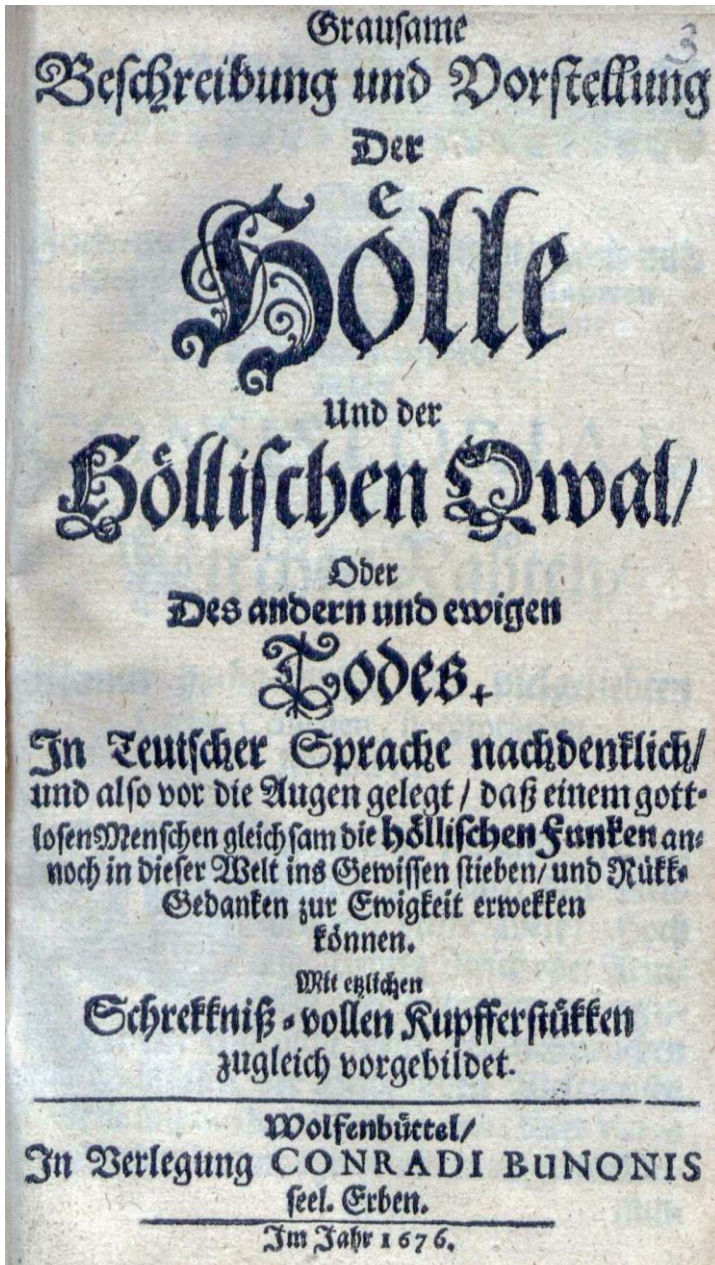 3
Grausame
Beschreibung und Vorstellung
Der
Hölle
Und der
Höllischen Qwal/
Oder
Des andern und ewigen
Todes.
In Teutscher Sprache nachdenklich/
und also vor die Augen gelegt / daß einem gott-
losen Menschen gleichsam die höllischen Funken an-
noch in dieser Welt ins Gewissen stieben/ und Rükk-
Gedanken zur Ewigkeit erwekken
können.
Mit etzlichen
Schrekkniß-vollen Kupfferstükken
zugleich vorgebildet.
Wolfenbüttel/
In Verlegung CONRADI BuNONIS
seel. Erben.
Im Jahr 1676.